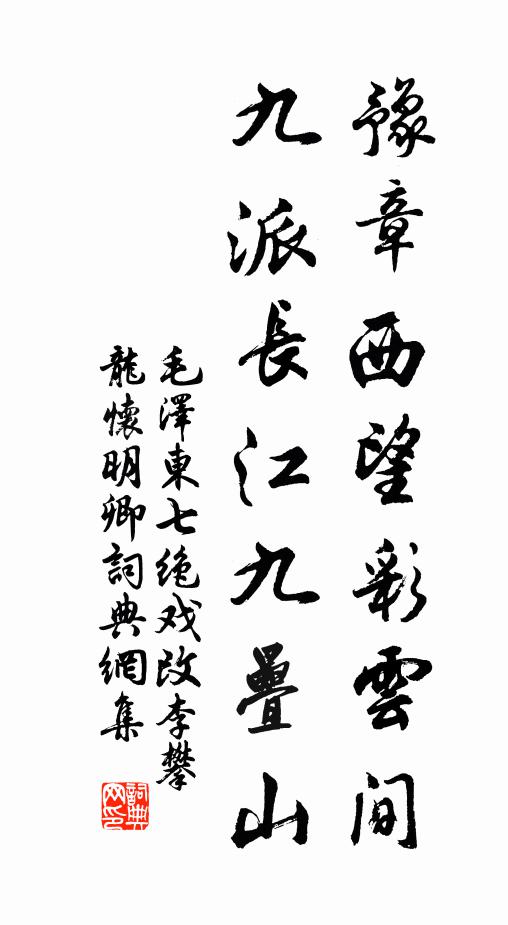 豫章西望彩雲间
九派長江九疊山
毛澤東七绝戏改李攀
龍懷明卿詞典網集
詞典网印